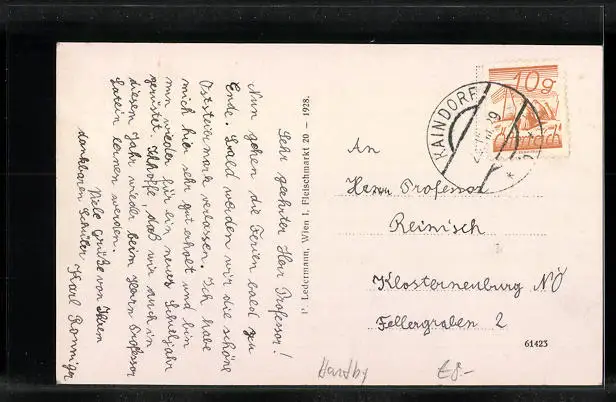 Sehr geehrter Herr Professor!
Nun gehen die Ferien bald zu
Ende. Bald werden wir die schöne
Oststeiermark verlassen. Ich habe
mich hier sehr gut erholt und bin
nun wieder für ein neues Schuljahr
gerüstet. Ich hoffe, daß wir auch in
diesem Jahr wieder beim Herrn Professor
Latein lernen werden.
Viele Grüße von Ihrem
dankbaren Schüler Karl Ronniger
P. Ledermann, Wien I. Fleischmarkt 20 — 1928.
KAINDORF
10g
An
Herrn Professor
Reinisch
Klosternenburg NÖ
Fellergraben 2
61423
Hartby
€8.-